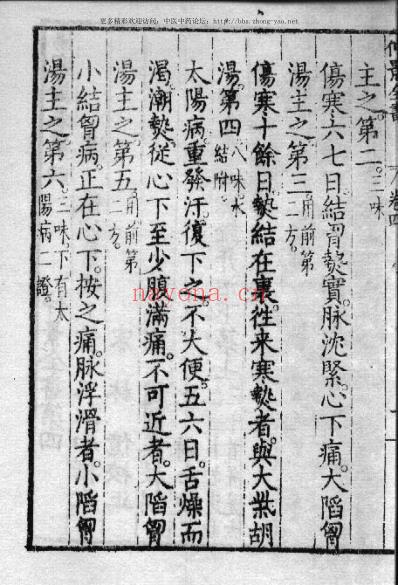 更多精彩欢迎访问：中医中药论坛：http://bbs.zhong-yao.net
主之第二三味
傷寒六七日結胷熱實脉沈緊心下痛大䧟胷
湯主之第三用前第二方。
傷寒十餘日熱結在裏徃来寒熱者。與大柴胡
湯。第四八味水結附。
太陽病。重發汗復下之。不大便。五六日。舌燥而
渴。潮熱。從心下至少腹滿痛。不可近者。大䧟胷
湯主之第五用前第二方。
小結胷病。正在心下。按之痛。脉浮滑者。小䧟胷
湯主之第六三味。下有太陽病二證。
nayona.cn